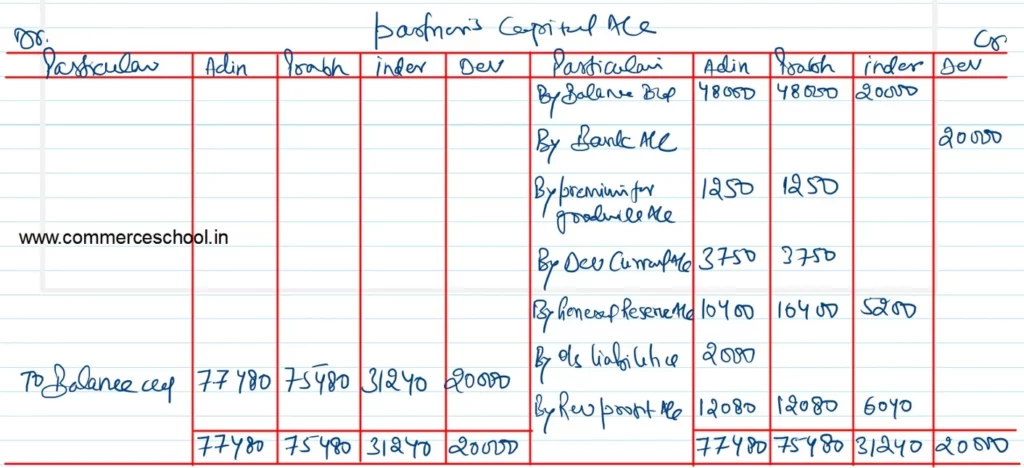 Partner's Capital A/c
Dr. Cr.
Particular Adin Prabh inder Dev Particulars Adin Prabh inder Dev
By Balance B/d 48000 48000 20000
By Bank A/c 20000
By premium for 1250 1250
goodwill A/c
www.commerceschool.in
By Dev Current A/c 3750 3750
By General Reserve A/c 10400 10400 5200
By o/s liabilitice 2000
To Balance c/d 77480 75480 31240 20000
By Rev profit A/c 12080 12080 6040
77480 75480 31240 20000 77480 75480 31240 20000